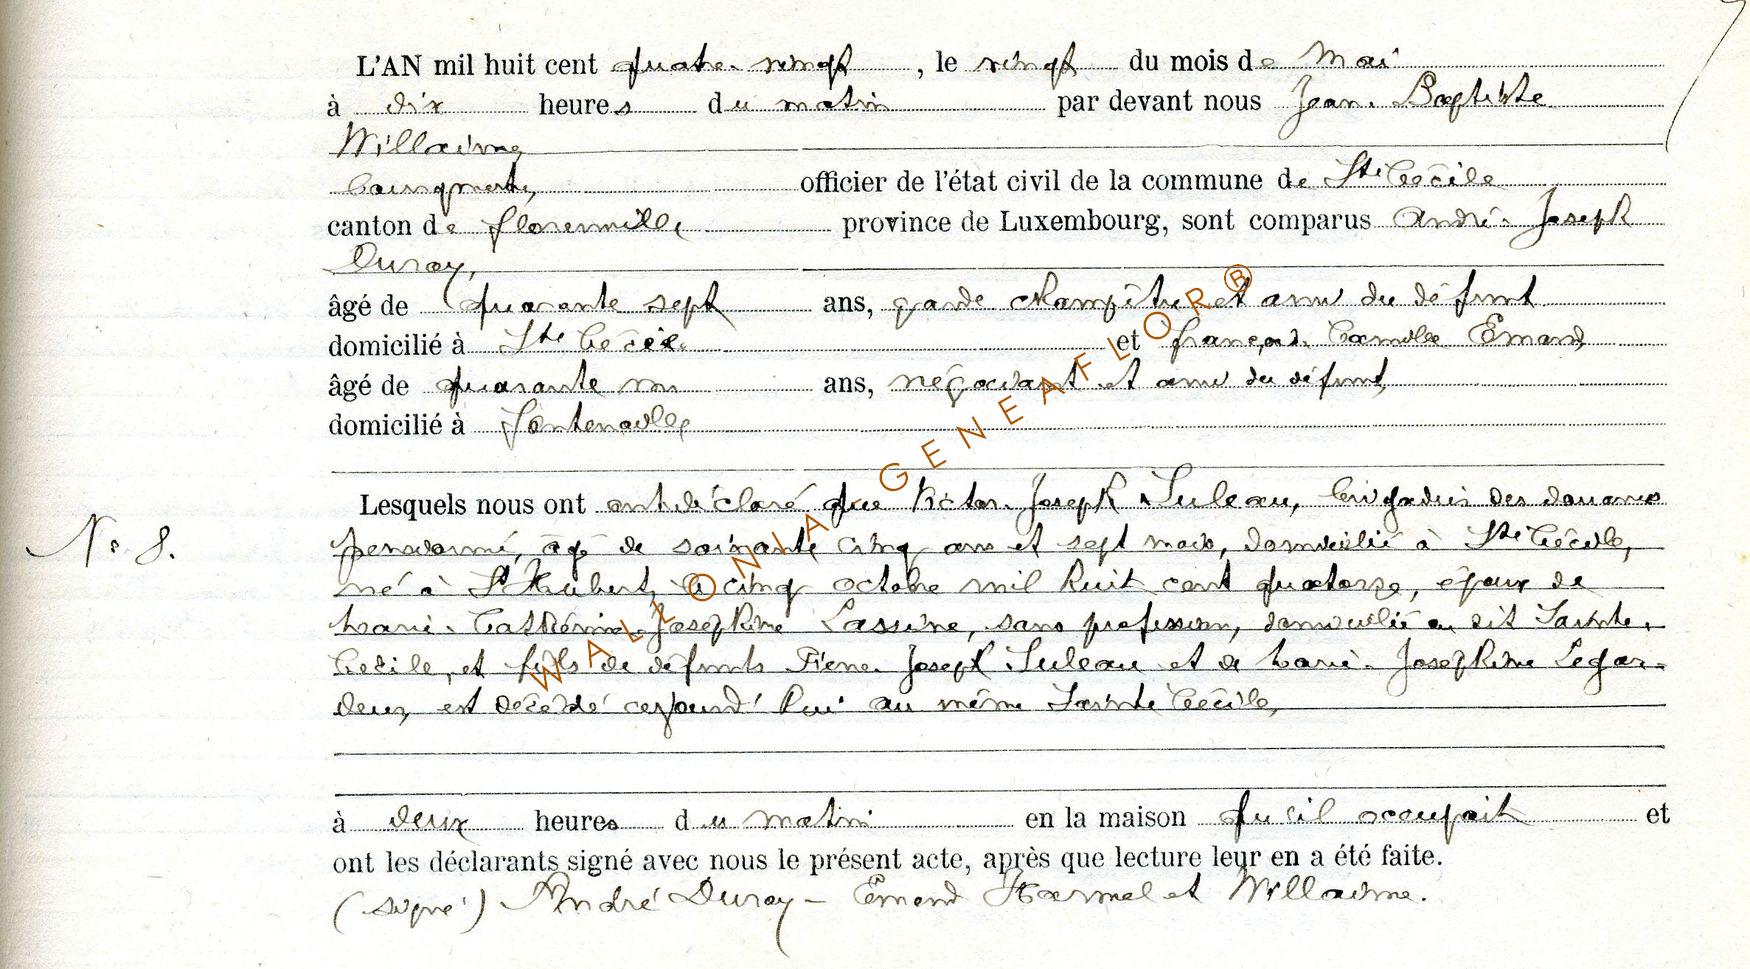 L'AN mil huit cent quatre-vingt, le vingt du mois de Mai
à dix heures du matin par devant nous Jean-Baptiste
Willaime,
Bourgmestre, officier de l'état civil de la commune de Ste Cécile
canton de Florenville, province de Luxembourg, sont comparus André-Joseph
Duroy,
âgé de quarante sept ans, garde champêtre et ami du défunt
domicilié à Ste Cécile et François Camille Emond,
âgé de quarante un ans, négociant et ami du défunt,
domicilié à Fontenoille
Lesquels nous ont ont déclaré que Victor-Joseph Suleau, brigadier des douanes
N° 8.
pensionné, âgé de soixante cinq ans et sept mois, domicilié à Ste Cécile,
né à St Hubert, le cinq octobre mil huit cent quatorze, époux de
Marie-Cathérine-Joséphine Lassine, sans profession, domiciliée au dit Sainte-
Cécile, et fils de défunts Pierre-Joseph Suleau et de Marie-Joséphine Legar-
deur, est décédé cejourd'hui au même Sainte Cécile,
à deux heures du matin en la maison qu'il occupait et
ont les déclarants signé avec nous le présent acte, après que lecture leur en a été faite.
(signé) André Duroy - Emond Harmel et Willaime.
WALLONIA GENEAFLOR®